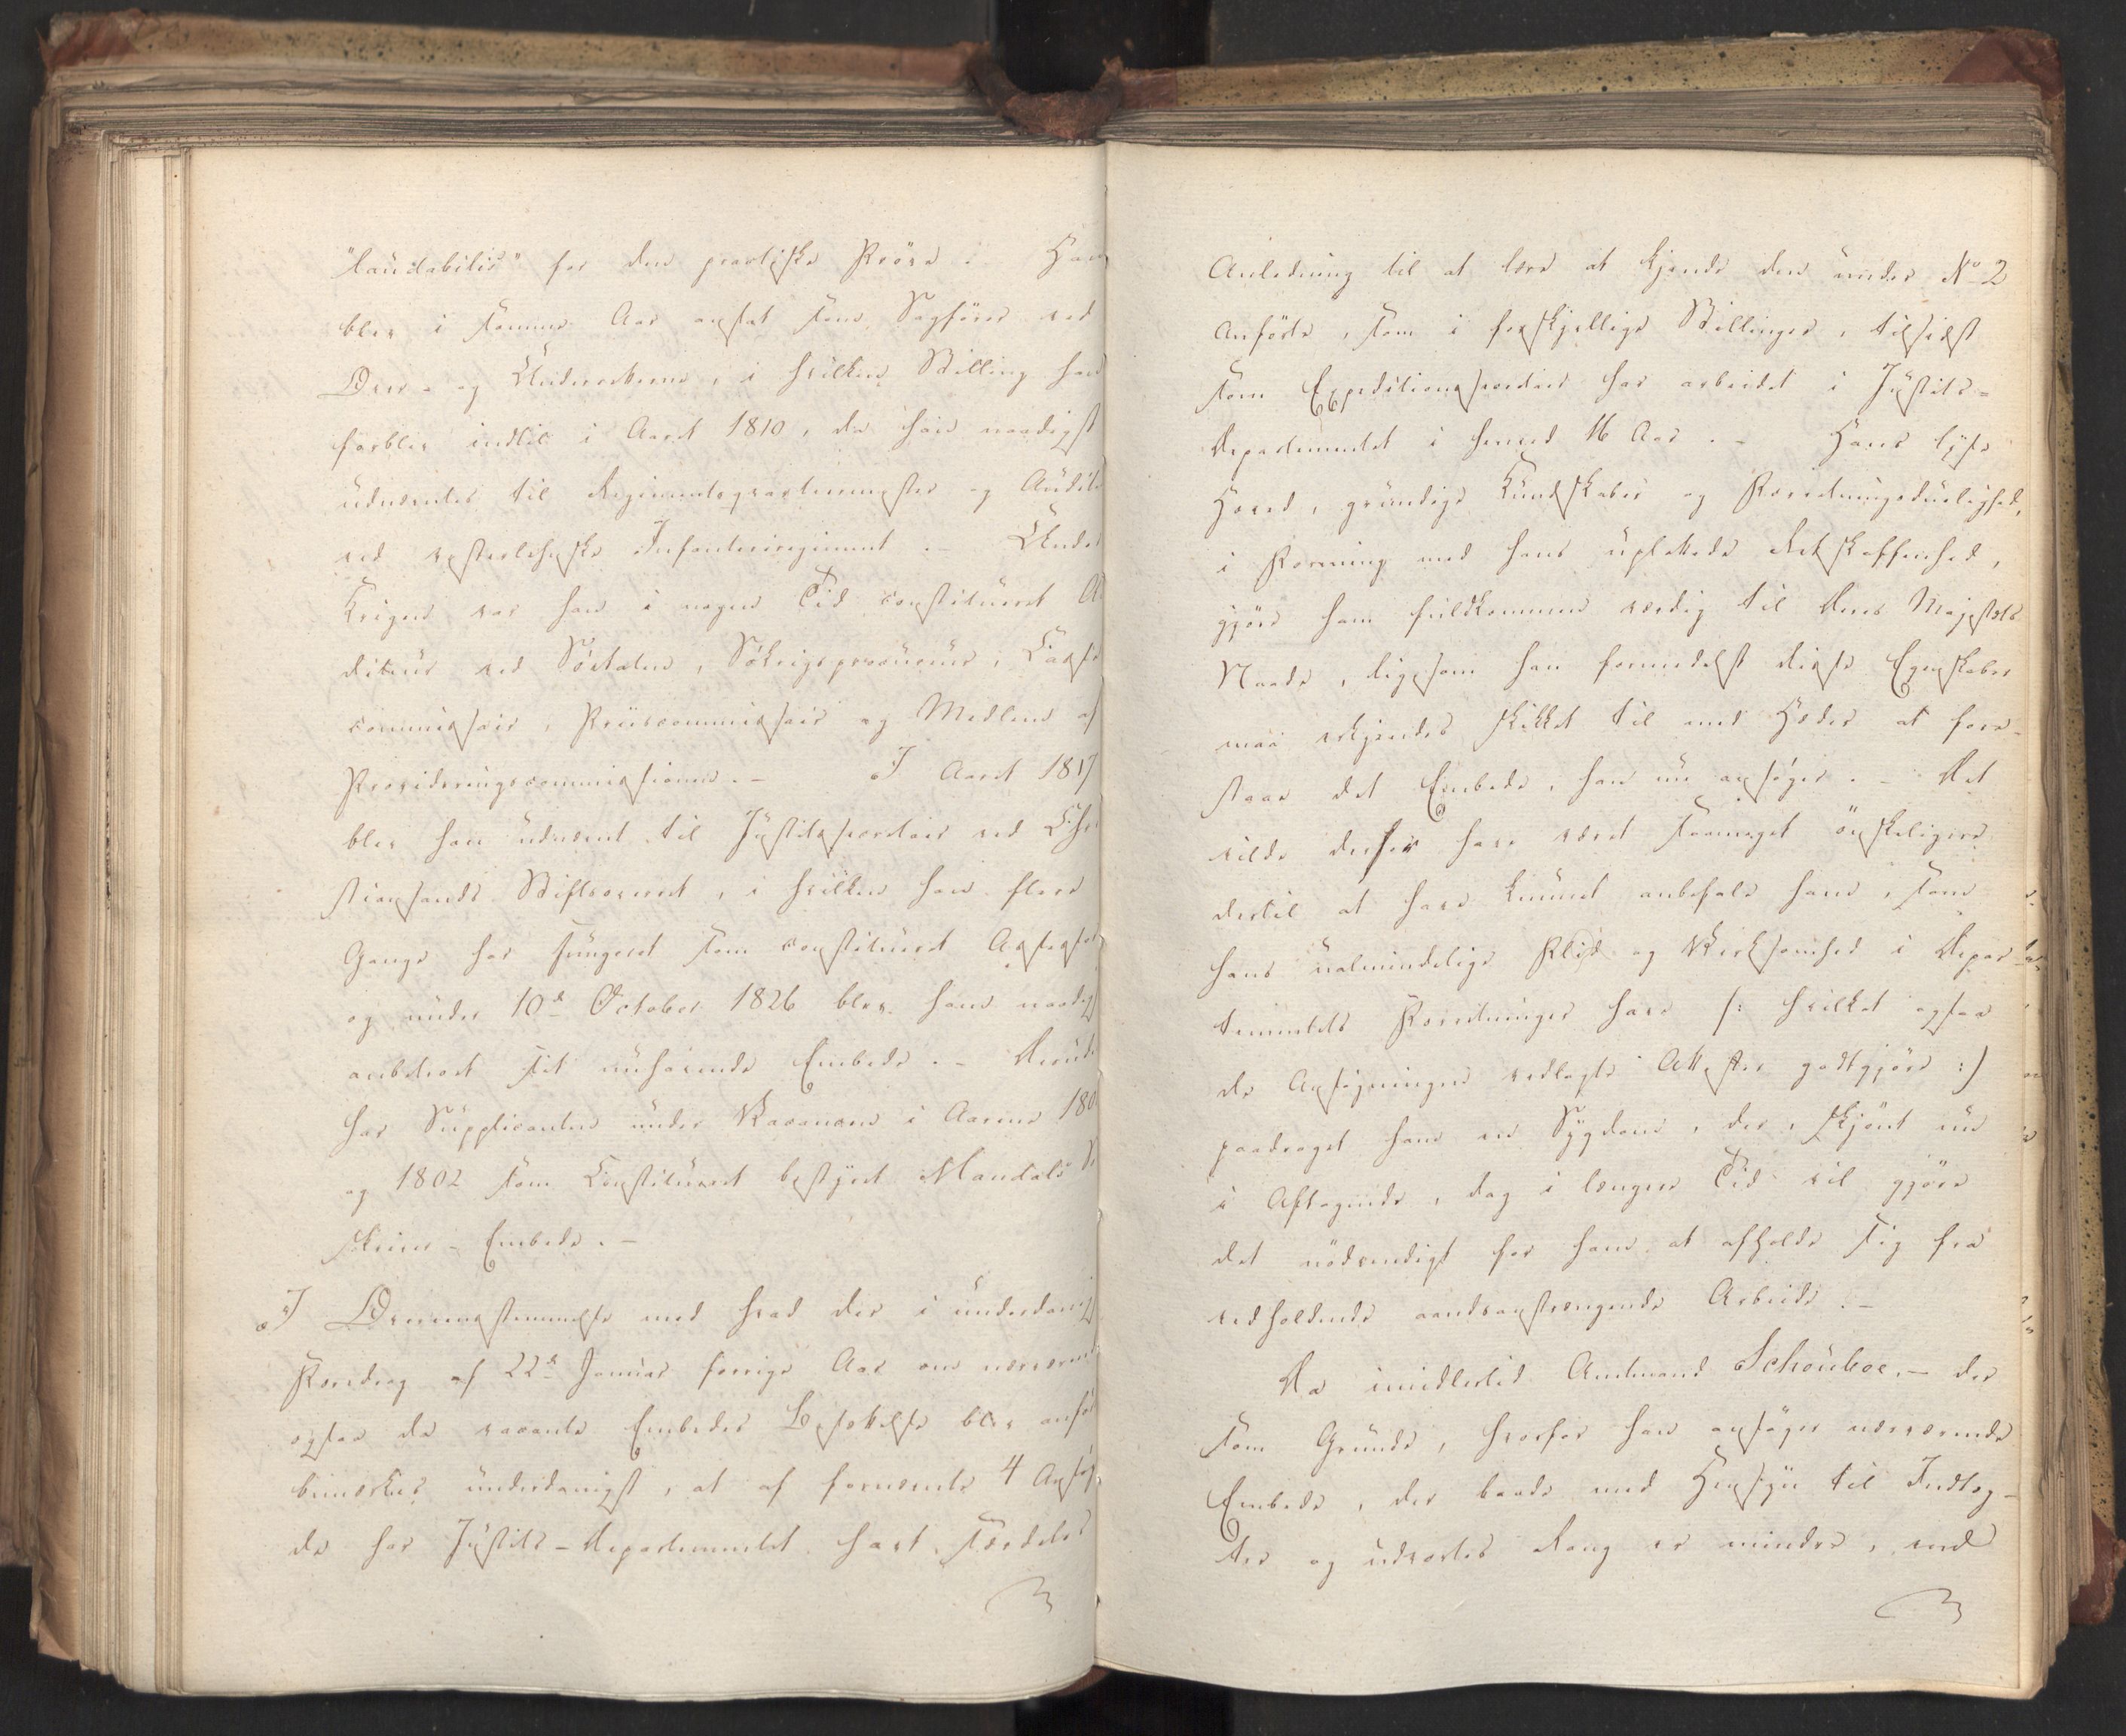 "laudabilis" for den practiske Pröve. Han
blev i samme Aar ansat som Sagförer ved
Over- og Underretterne, i hvilken Stilling han
forblev indtil i Aaret 1810, da han naadigst
udnævntes til Regimentsqvarteermester og Audit
ved vesterlehnske Infanteriregiment. – Under
Krigen var han i nogen Tid constitueret A
diteur ved Söetaten, Sökrigsprocureur, Casse
commissair, Priiscommissair og Medlem af
Provideringscommissionen. – I Aaret 1817
blev han udnævnt til Justitssecretair ved Chri
stiansands Stiftsoverret, i hvilken han flere
Gange har fungeret som constitueret Assessor
og under 10de October 1826 blev ham naadigs
anbetroet sit nuhavende Embede. – Desud
har Supplicanten under Vacancen i Aarene 180
og 1802 som Constitueret bestyret Mandals
skriver-Embede. –
I Overeensstemmelse med hvad der i underdanigs
Foredrag af 22de Januar forrige Aar om nærværend
ogsaa da vacante Embedes Besættelse blev anför
bemærkes underdanigst, at af fornævnte 4 Ansög
de har Justits-Departementet havt særdeles
Anledning til at lære at kjende den under No 2
Anförte, som i forskjellige Stillinger, tilsidst
som Expeditionssecretair har arbeidet i Justits-
Departementet i henved 16 Aar. – Hans lyse
Hoved, grundige Kundskaber og Forretningsduelighed,
i Forening med hans uplettede Retskaffenhed,
gjöre ham fuldkommen værdig til Deres Majestæts
Naade, ligesom han formedelst disse Egenskaber
maa erkjendes skikket til med Hæder at fore-
staae det Embede, han nu ansöger. – Det
vilde derfor have været saameget önskeligere
dertil at have kunnet anbefale ham, som
hans ualmindelige Flid og Virksomhed i Depar-
tementets Forretninger have /: hvilket ogsaa
de Ansögningen vedlagte Attester godtgjöre :/
paadraget ham en Sygdom, der, skjönt nu
i Aftagende, dog i længere Tid vil gjöre
det nödvendigt for ham at afholde sig fra
vedholdende aandsanstrengende Arbeide. –
Da imidlertid Amtmand Schouboe, – der
som Grunde, hvorfor han ansöger nærværende
Embede, der baade med Hensyn til Indtæg-
ter og udvortes Rang er mindre, end